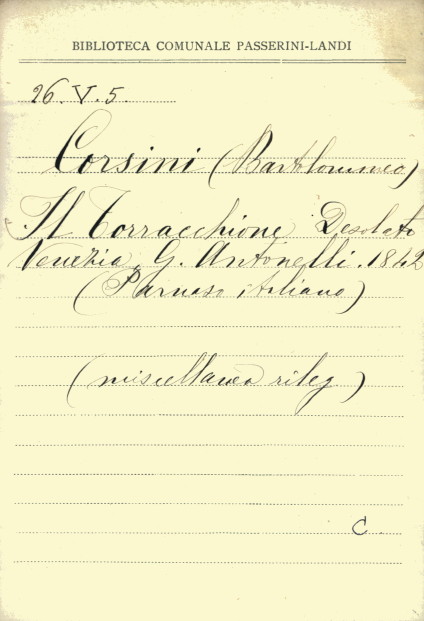 BIBLIOTECA COMUNALE PASSERINI-LANDI
26.V.5.
Corsini (Bartolommeo)
Il Torracchione Desolato
Venezia, G. Antonelli. 1842
(Parnaso italiano)
(miscellanea rileg)
C